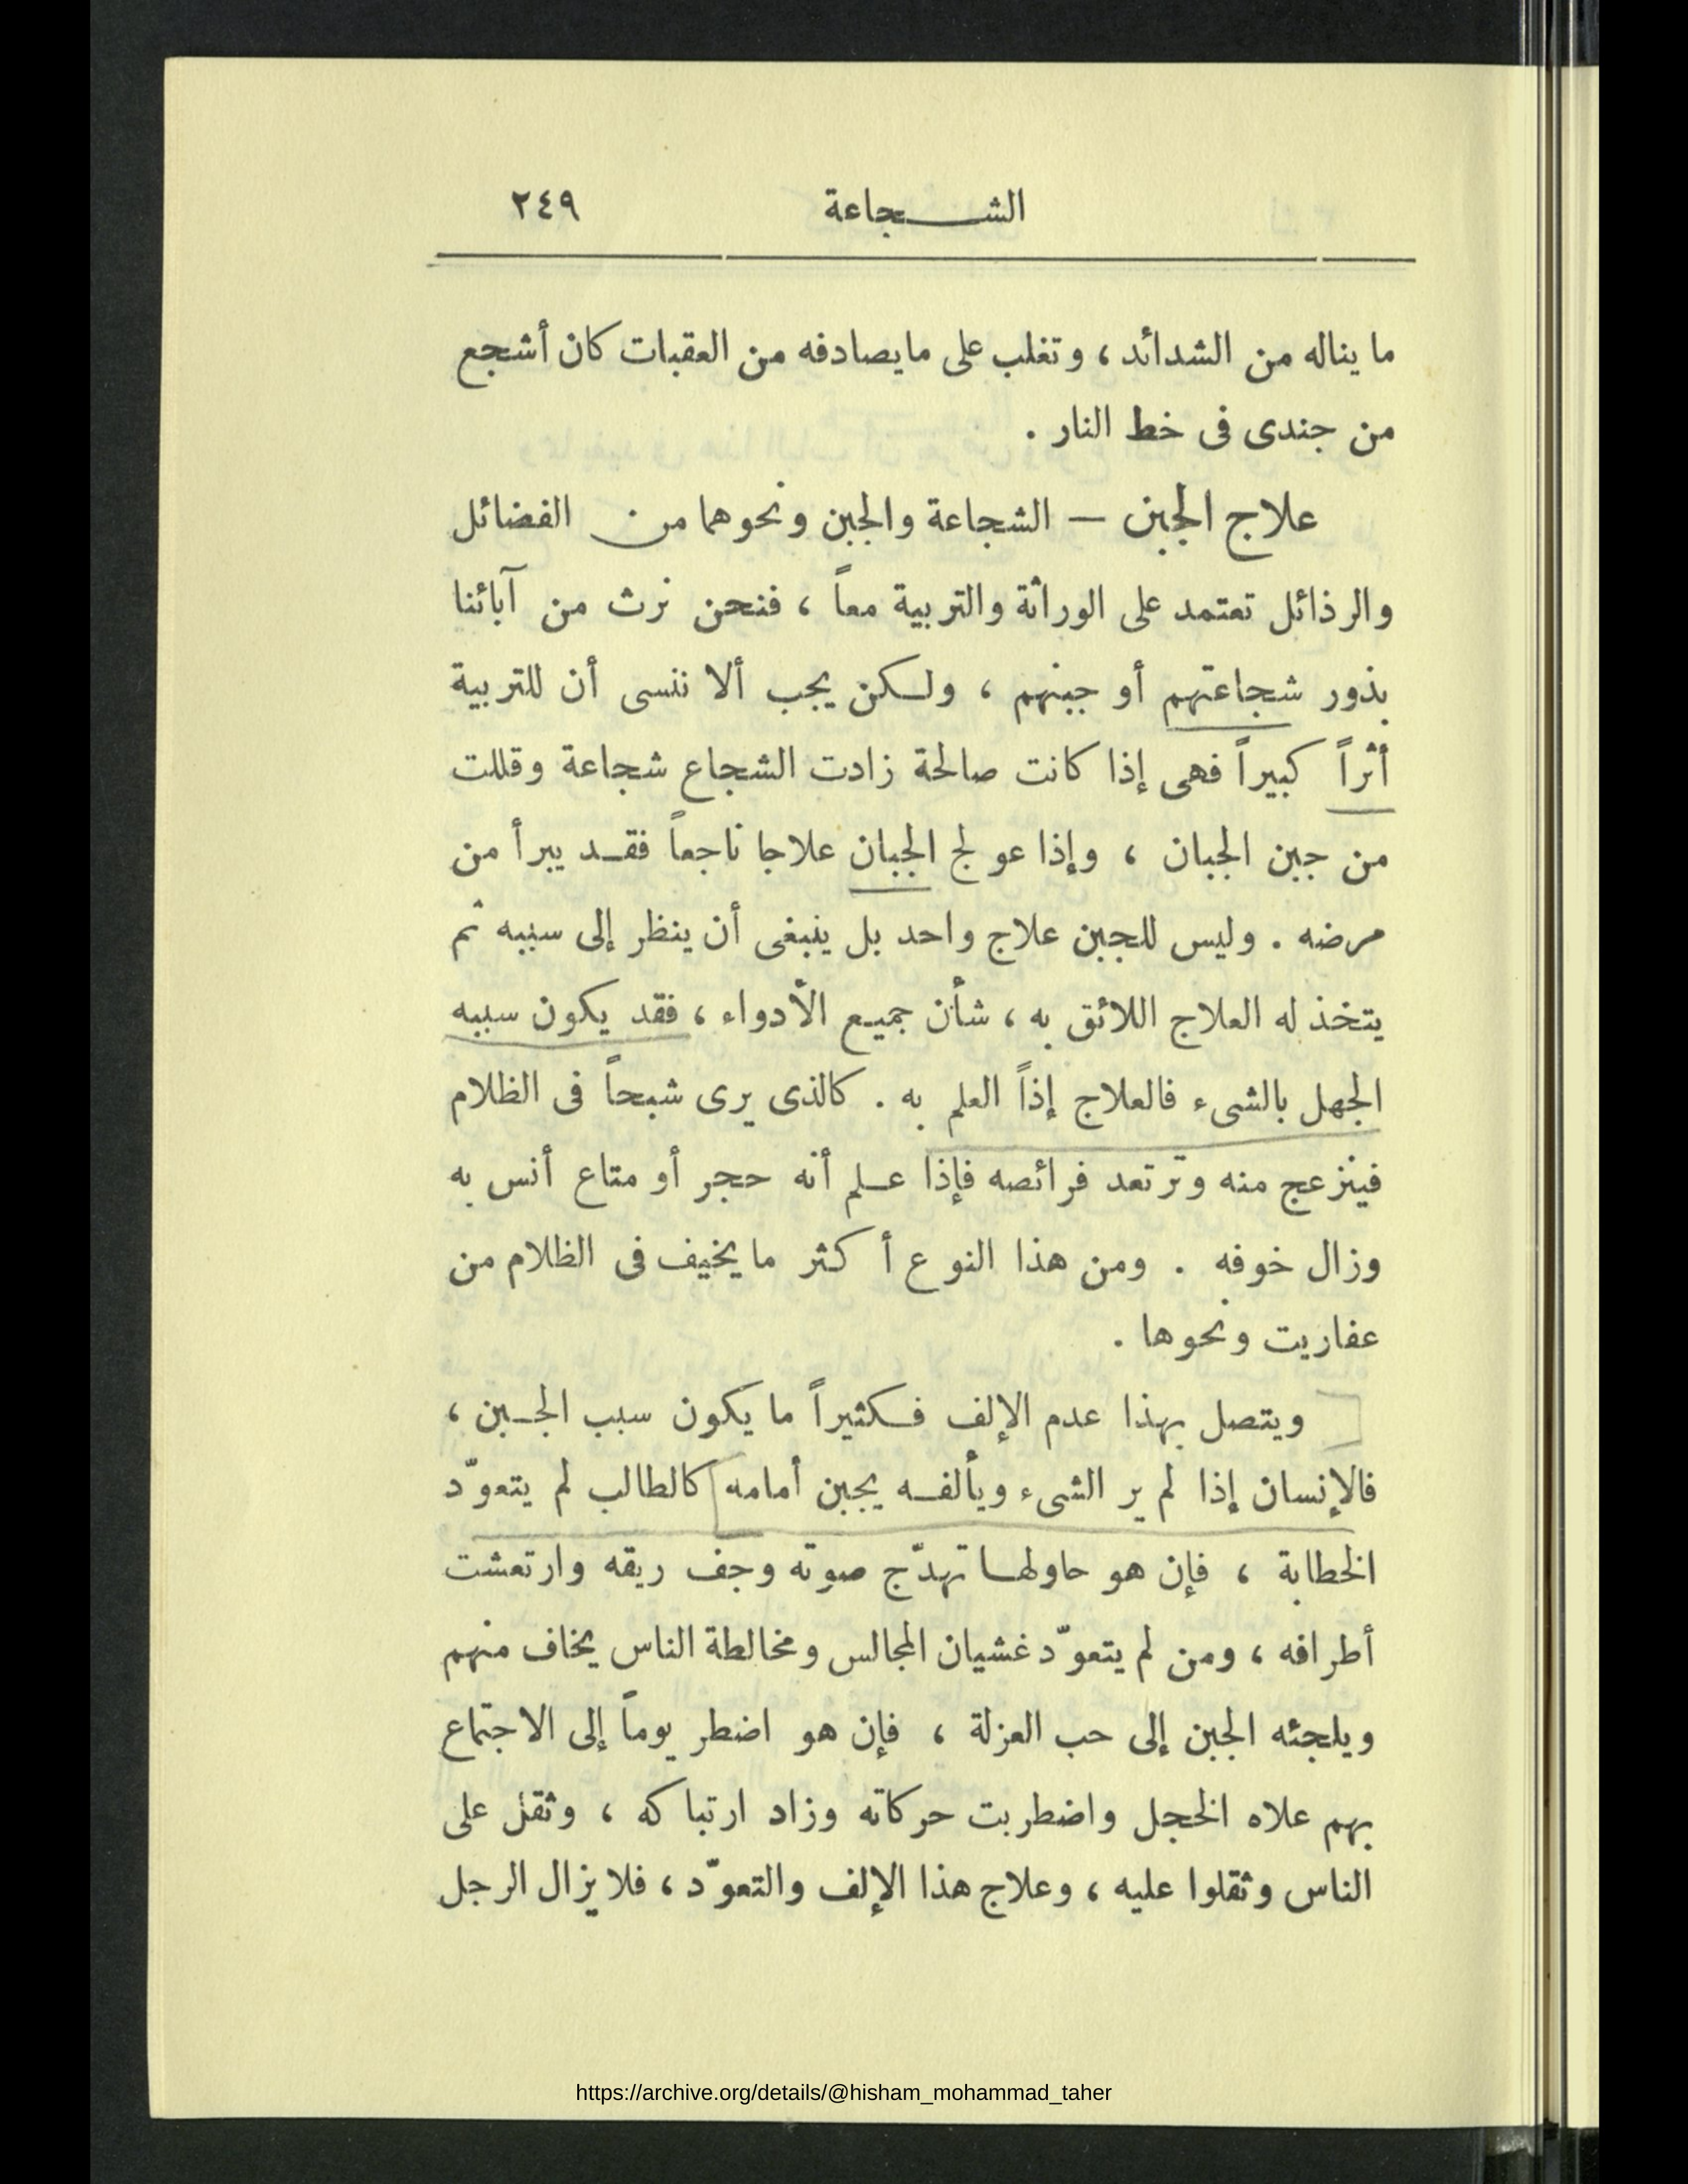 الشجاعة ٢٤٩
ما يناله من الشدائد ، وتغلب على ما يصادفه من العقبات كان أشجع
من جندى فى خط النار .
علاج الجبن — الشجاعة والجبن ونحوهما من الفضائل
والرذائل تعتمد على الوراثة والتربية معاً ، فنحن نرث من آبائنا
بذور شجاعتهم أو جبنهم ، ولكن يجب ألا ننسى أن للتربية
أثراً كبيراً فهى إذا كانت صالحة زادت الشجاع شجاعة وقللت
من جبن الجبان ، وإذا عولج الجبان علاجا ناجعاً فقد يبرأ من
مرضه . وليس للجبن علاج واحد بل ينبغى أن ينظر إلى سببه ثم
يتخذ له العلاج اللائق به ، شأن جميع الأدواء ، فقد يكون سببه
الجهل بالشىء فالعلاج إذاً العلم به . كالذى يرى شبحاً فى الظلام
فينزعج منه وترتعد فرائصه فإذا علم أنه حجر أو متاع أنس به
وزال خوفه . ومن هذا النوع أكثر ما يخيف فى الظلام من
عفاريت ونحوها .
ويتصل بهذا عدم الإلف فكثيراً ما يكون سبب الجبن ،
فالإنسان إذا لم ير الشىء ويألفه يجبن أمامه كالطالب لم يتعوّد
الخطابة ، فإن هو حاولها تهدّج صوته وجف ريقه وارتعشت
أطرافه ، ومن لم يتعوّد غشيان المجالس ومخالطة الناس يخاف منهم
ويلجئه الجبن إلى حب العزلة ، فإن هو اضطر يوماً إلى الاجتماع
بهم علاه الخجل واضطربت حركاته وزاد ارتباكه ، وثقل على
الناس وثقلوا عليه ، وعلاج هذا الإلف والتعوّد ، فلا يزال الرجل
https://archive.org/details/@hisham_mohammad_taher